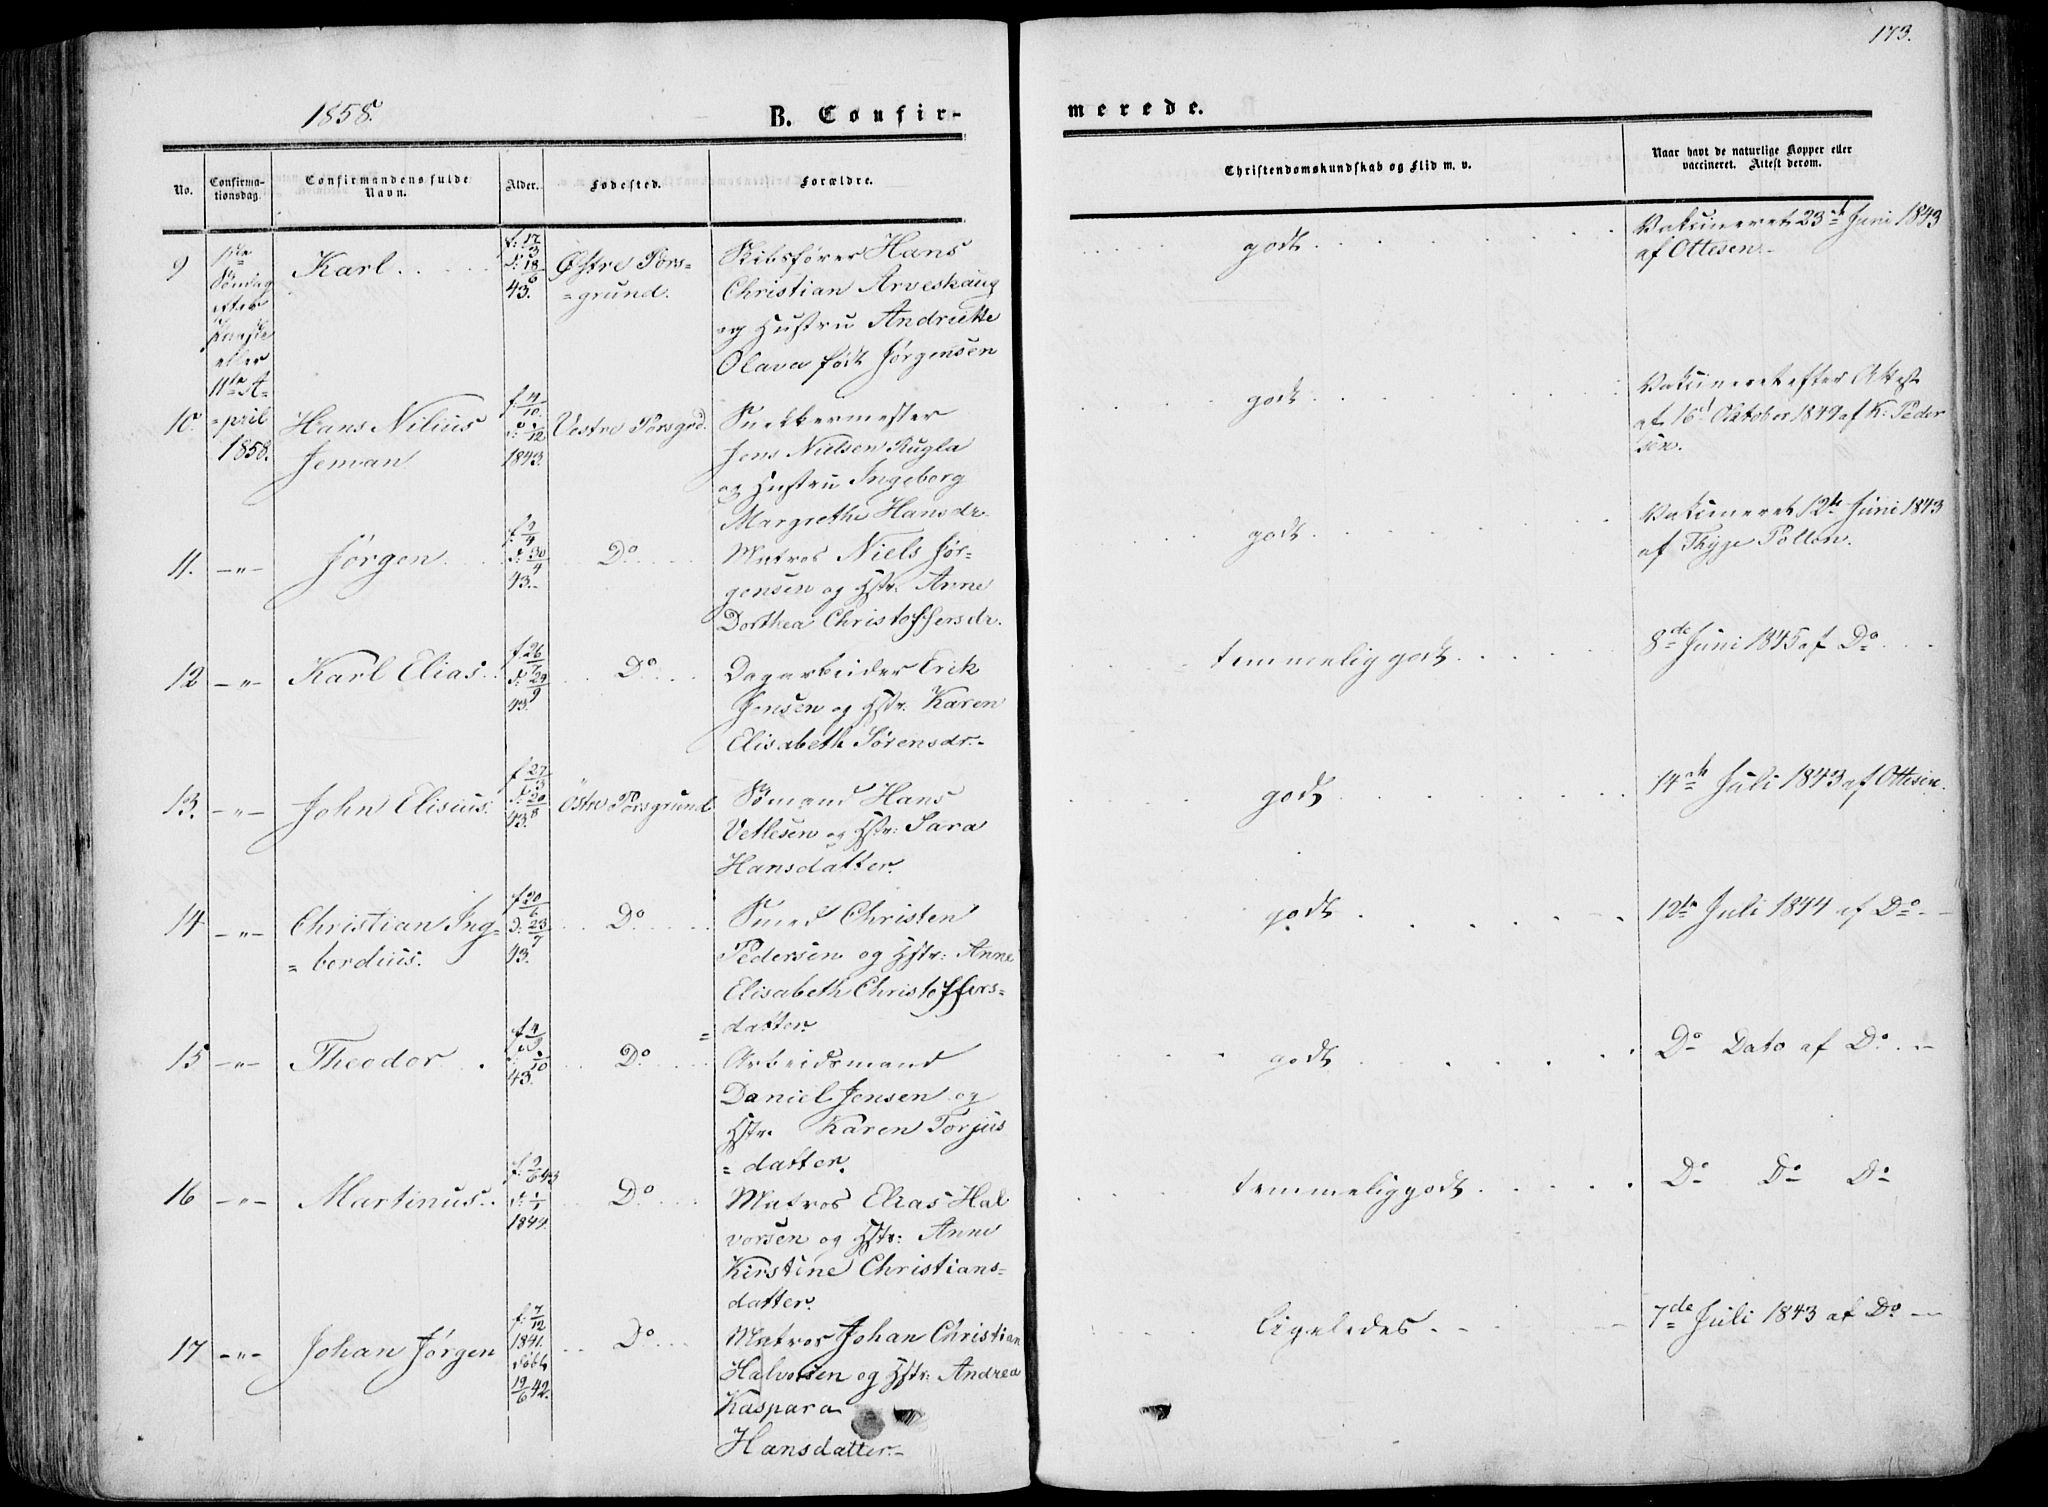 173.
1858.
B. Confir-
merede.
No.
Confirma-
tionsdag.
Confirmandens fulde
Navn.
Alder.
Fødested.
Forældre.
Christendomskundskab og Flid m. v.
Naar havt de naturlige Kopper eller
vaccineret. Attest derom.
9
1ste
Søndag
efter
Paaske
eller
11te A-
=pril
1858.
Karl
f: 17/3
d: 18/6
43.
Østre Pors=
=grund.
Skibsfører Hans
Christian Arveskaug
og Hustru Andrette
Olava født Jørgensen
godt
Vakcineret 23de Juni 1843
af Ottesen.
10.
Hans Nilius
Jeman
f: 4/10
1843.
Vestre Porsgd.
Snekkermester
Jens Nielsen Kugla
og Hustru Ingeborg
Margrethe Hansdr.
godt
Vakcineret efter Attest
af 16d Oktober 1849 af K: Peder
sen.
11.
-"-
Jørgen
f: 2/4
d: 30/4
43.
Do
Matros Niels Jør-
gensen og Hstr: Anne
Dorthea Christoffersdr.
godt
Vakcineret 12te Juni 1843
af Thyge Pollon.
12
-"-
Karl Elias
f 26/7
d: 29/9
43.
Do
Dagarbeider Erik
Jensen og Hstr. Karen
Elisabeth Sørensdr.
temmelig godt
8de Juni 1845 af Do
13.
-"-
John Elisius.
f 27/3
d: 20/8
43.
Østre Porsgrund
Sømand Hans
Vetlesen og Hstr: Sara
Hansdatter.
godt
14de Juli 1843 af Ottesen.
14
-"-
Christian Ing=
=bordius.
f 20/6
D. 23/7
43.
Do
Smed Christen
Pedersen og Hstr: Anne
Elisabeth Christoffers=
=datter.
godt
12te Juli 1844 af Do
15
-"-
Theodor
f 4/9
43.
Do
Arbeidsmand
Daniel Jensen og
Hstr. Karen Torjus
=datter.
godt
Do Dato af Do
16
-"-
Martinus.
f: 2/6 43
d: 1/1
1844.
Do
Matros Elias Hal
vorsen og Hstr: Anne
Kirstine Christians=
datter.
temmelig godt
Do Do Do
17
-"-
Johan Jørgen
f: 7/12
1841.
døbt
19/6 42.
Do
Matros Johan Christian
Halvorsen og Hstr: Andrea
Kaspara
Hansdatter.
ligeledes
7de Juli 1843 af Do